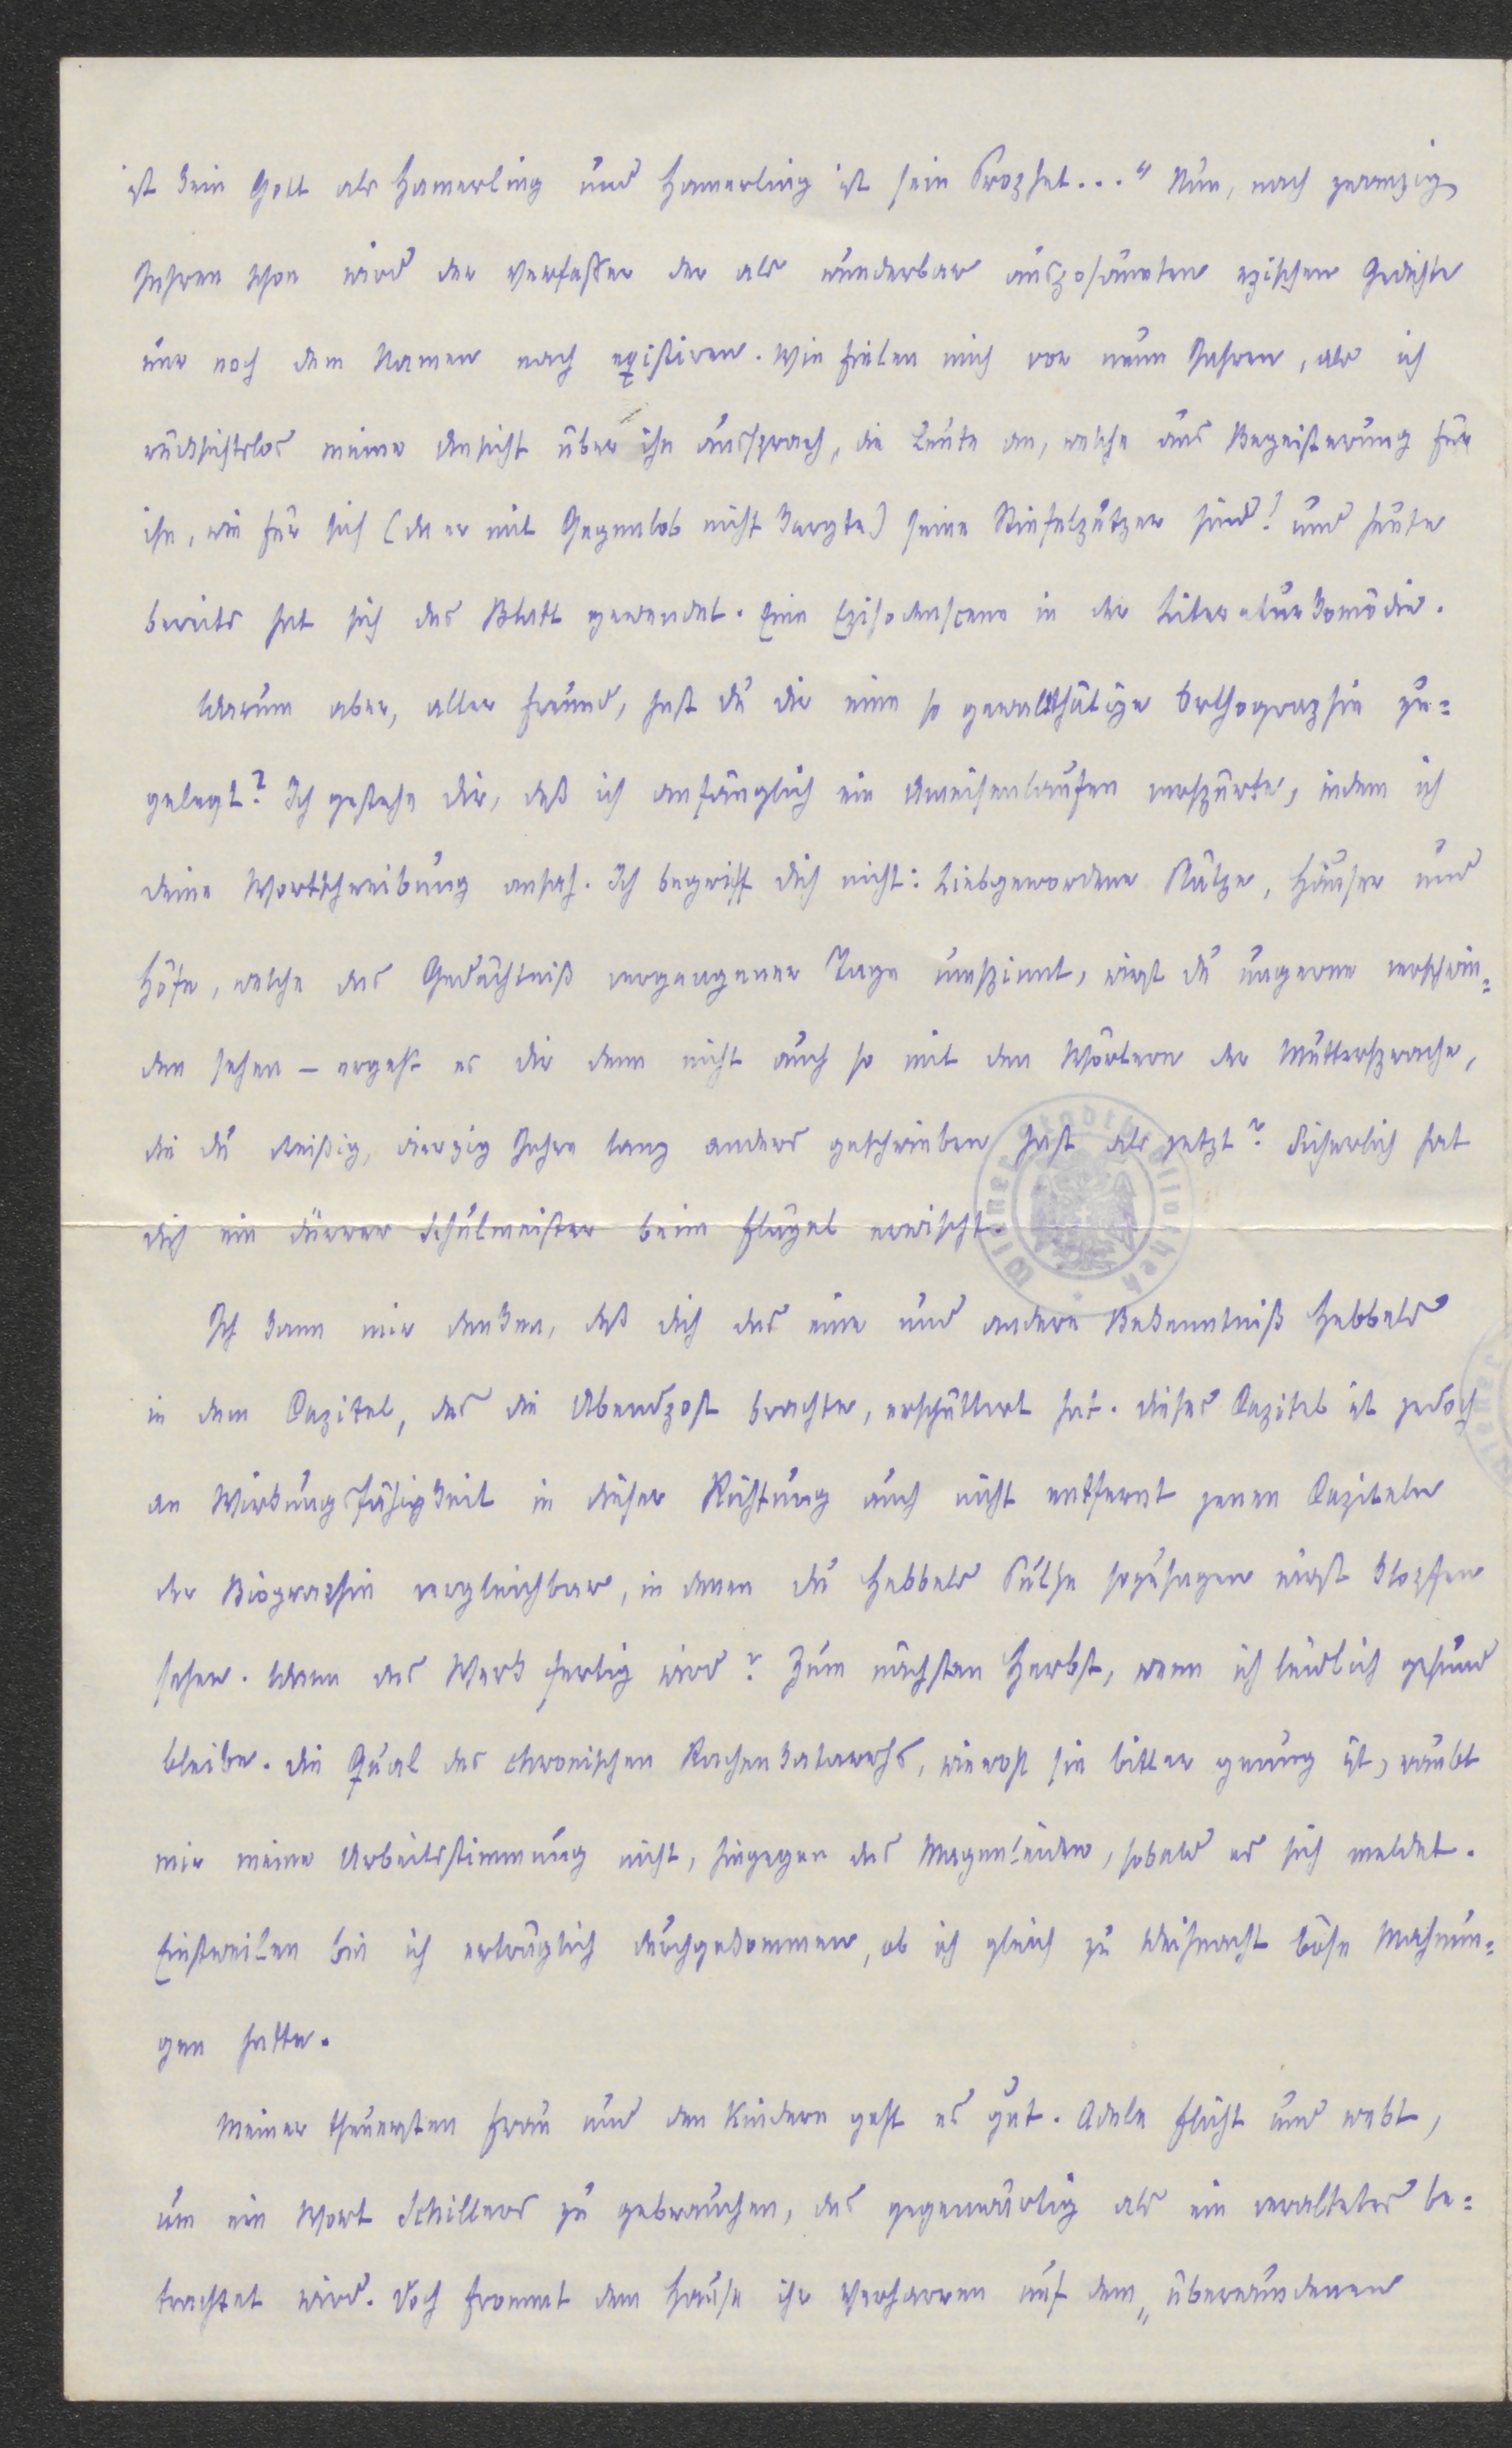 ist kein Gott als Hamerling und Hamerling ist sein Prophet..." Nun, nach zwanzig
Jahren schon wird der Verfasser der als wunderbar ausposaunten epischen Gedichte
nur noch dem Namen nach existiren. Wie fielen mich vor neun Jahren, als ich
rücksichtslos meine Ansicht über ihn aussprach, die Leute an, welche aus Begeisterung für
ihn, wie für sich (da er mit Gegenlob nicht kargte) seine Stiefelputzer sind! und heute
bereits hat sich das Blatt gewendet. Eine Episodenscene in der Literaturkomödie.
Warum aber, alter Freund, hast du dir eine so gewaltthätige Orthographie zu=
gelegt? Ich gestehe dir, daß ich anfänglich ein Ameisenlaufen verspürte, indem ich
deine Wortschreibung ansah. Ich begriff dich nicht: Liebgewordene Plätze, Häuser und
Höfe, welche das Gedächtniß vergangener Tage umspinnt, wirst du ungerne verschwin=
den sehen – ergeht es dir denn nicht auch so mit den Wörtern der Muttersprache,
die du dreißig, vierzig Jahre lang anders geschrieben hast als jetzt? Sicherlich hat
dich ein dürrer Schulmeister beim Flügel erwischt.
Ich kann mir denken, daß dich das eine und andere Bekenntniß Hebbels
in dem Capitel, das die Abendpost brachte, erschüttert hat. Dieses Capitel ist jedoch
an Wirkungsfähigkeit in dieser Richtung auch nicht entfernt jenen Capiteln
der Biographie vergleichbar, in denen du Hebbels Pulse sozusagen wirst klopfen
sehen. Wann das Werk fertig wird? Zum nächsten Herbst, wenn ich leidlich gesund
bleibe. Die Qual des chronischen Rachenkatarrhs, wiewohl sie bitter genug ist, raubt
mir meine Arbeitsstimmung nicht, hingegen das Magenleiden, sobald es sich meldet.
Einstweilen bin ich erträglich durchgekommen, ob ich gleich zu Weihnacht böse Mahnun=
gen hatte.
Meiner theuersten Frau und den Kindern geht es gut. Adele flicht und webt,
um ein Wort Schillers zu gebrauchen, das gegenwärtig als ein veraltetes be=
trachtet wird. Doch frommt dem Hause ihr Verharren auf dem „überwundenen
Wiener Stadtbibliothek